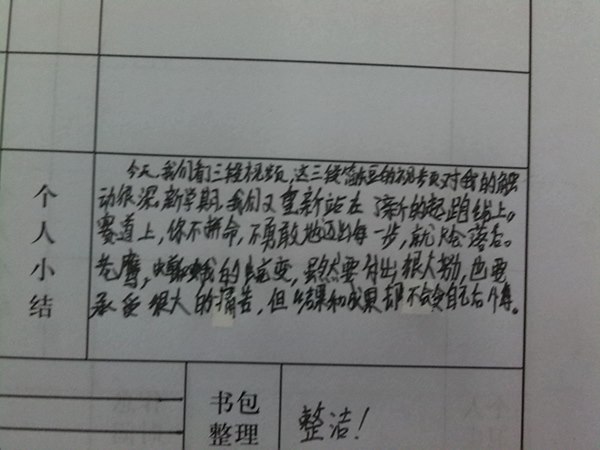 个人小结
今天,我们看了三段视频,这三段简短的视频对我的触
动很深,新学期,我们又重新站在了新的起跑线上。
赛道上,你不拼命,不勇敢地迈出每一步,就会落后。
老鹰,蝴蝶的蜕变,虽然要付出很大努力,也要
承受很大的痛苦,但结果和成果却不会令自己后悔。
书包
整理
整洁!